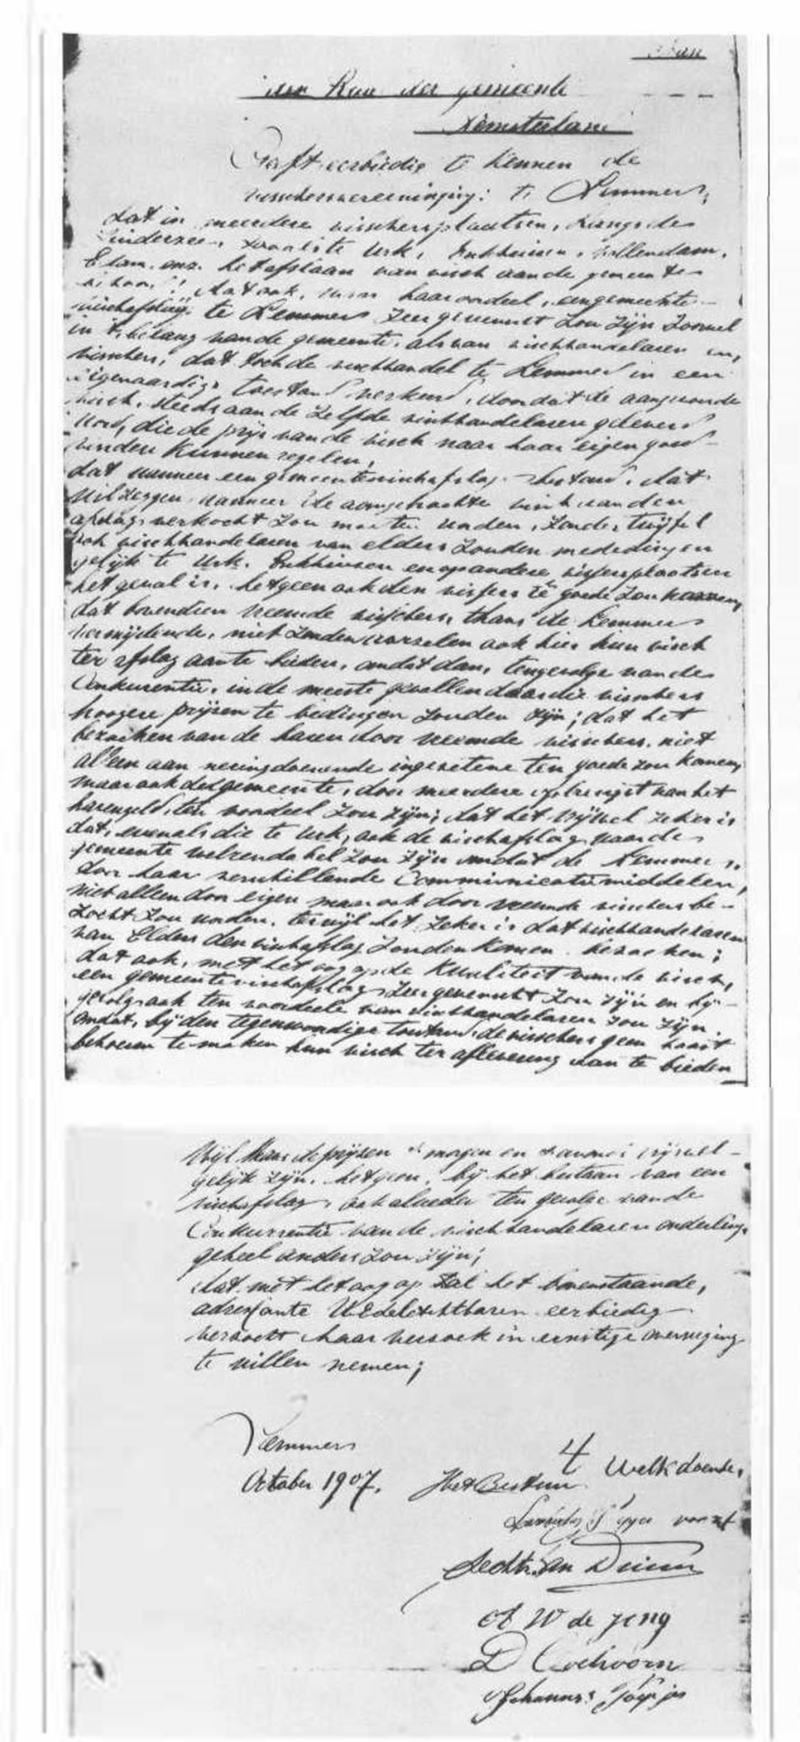 Aan
den Raad der gemeente
Lemsterland
Geeft eerbiedig te kennen de
visschersvereeniging: te Lemmer,
dat in meerdere visschersplaatsen, langs de
Zuiderzee, zooals te Urk, Enkhuizen, Vollendam,
Edam, enz. het afslaan van visch aan de gemeente
dat ook, naar haar oordeel, een gemeente-
vischafslag te Lemmer zeer gewenscht zou zijn zoowel
in 't belang van de gemeente, als van vischhandelaren en
visschers; dat toch de vischhandel te Lemmer in een
eigenaardige toestand verkeerd, doordat de aangevoerde
visch, steeds aan de zelfde vischhandelaren geleverd
word, die de prijs van de visch naar haar eigen goed-
vinden kunnen regelen;
dat wanneer een gemeentevischafslag bestond, dat
wil zeggen wanneer de aangebrachte visch aan den
afslag verkocht zou moeten worden, zonder twijfel
ook vischhandelaren van elders zouden mededingen
gelijk te Urk, Enkhuizen en op andere vissersplaatsen
het geval is, hetgeen ook den vissers te goede zou komen,
dat bovendien vreemde visschers, thans de Lemmer
vermijdende, niet zouden aarselen ook hier hun visch
ter afslag aan te bieden, omdat dan, tengevolge van de
Conkurentie, in de meeste gevallen daar die visschers
hoogere prijsen te bedingen zouden zijn; dat het
bezoeken van de haven door vreemde visschers, niet
alleen aan neeringdoenende ingezetene ten goede zou komen,
maar ook de gemeente, door meerdere opbrengst van het
havengeld, ten voordeel zou zijn; dat het vrijwel zeker is
dat, evenals die te Urk, ook de vischafslag voor de
gemeente welrendabel zou zijn omdat de Lemmer,
door haar verschillende Communicatiemiddelen,
niet alleen door eigen maar ook door vreemde visschers be-
zocht zou worden, terwijl het zeker is dat vischhandelaren
van Elders den vischafslag zouden komen bezoeken;
dat ook, met het oog op de Kwaliteit van de visch,
een gemeentevischafslag zeer gewenscht zou zijn en bij-
gevolg ook ten voordeele van vischhandelaren zou zijn.
omdat, bij den tegenwoordige toestand, de visschers geen haast
behoeven te maken hun visch ter aflevering aan te bieden
Wijl thans de prijsen 's morgen en 's avonds vrijwel
gelijk zijn, hetgeen, bij het bestaan van een
vischafslag, ook alweder ten gevolge van de
Conkurrentie van de vischhandelaren onderling,
geheel anders zou zijn;
dat met het oog op al het bovenstaande,
adressante UEdelachtbaren eerbiedig
verzoekt haar verzoek in ernstige overweging
te willen nemen;
Lemmer
October 1907.
't Welk doende,
Het Bestuur
voorzt
van Duinen
W de Jong
D
Johannes